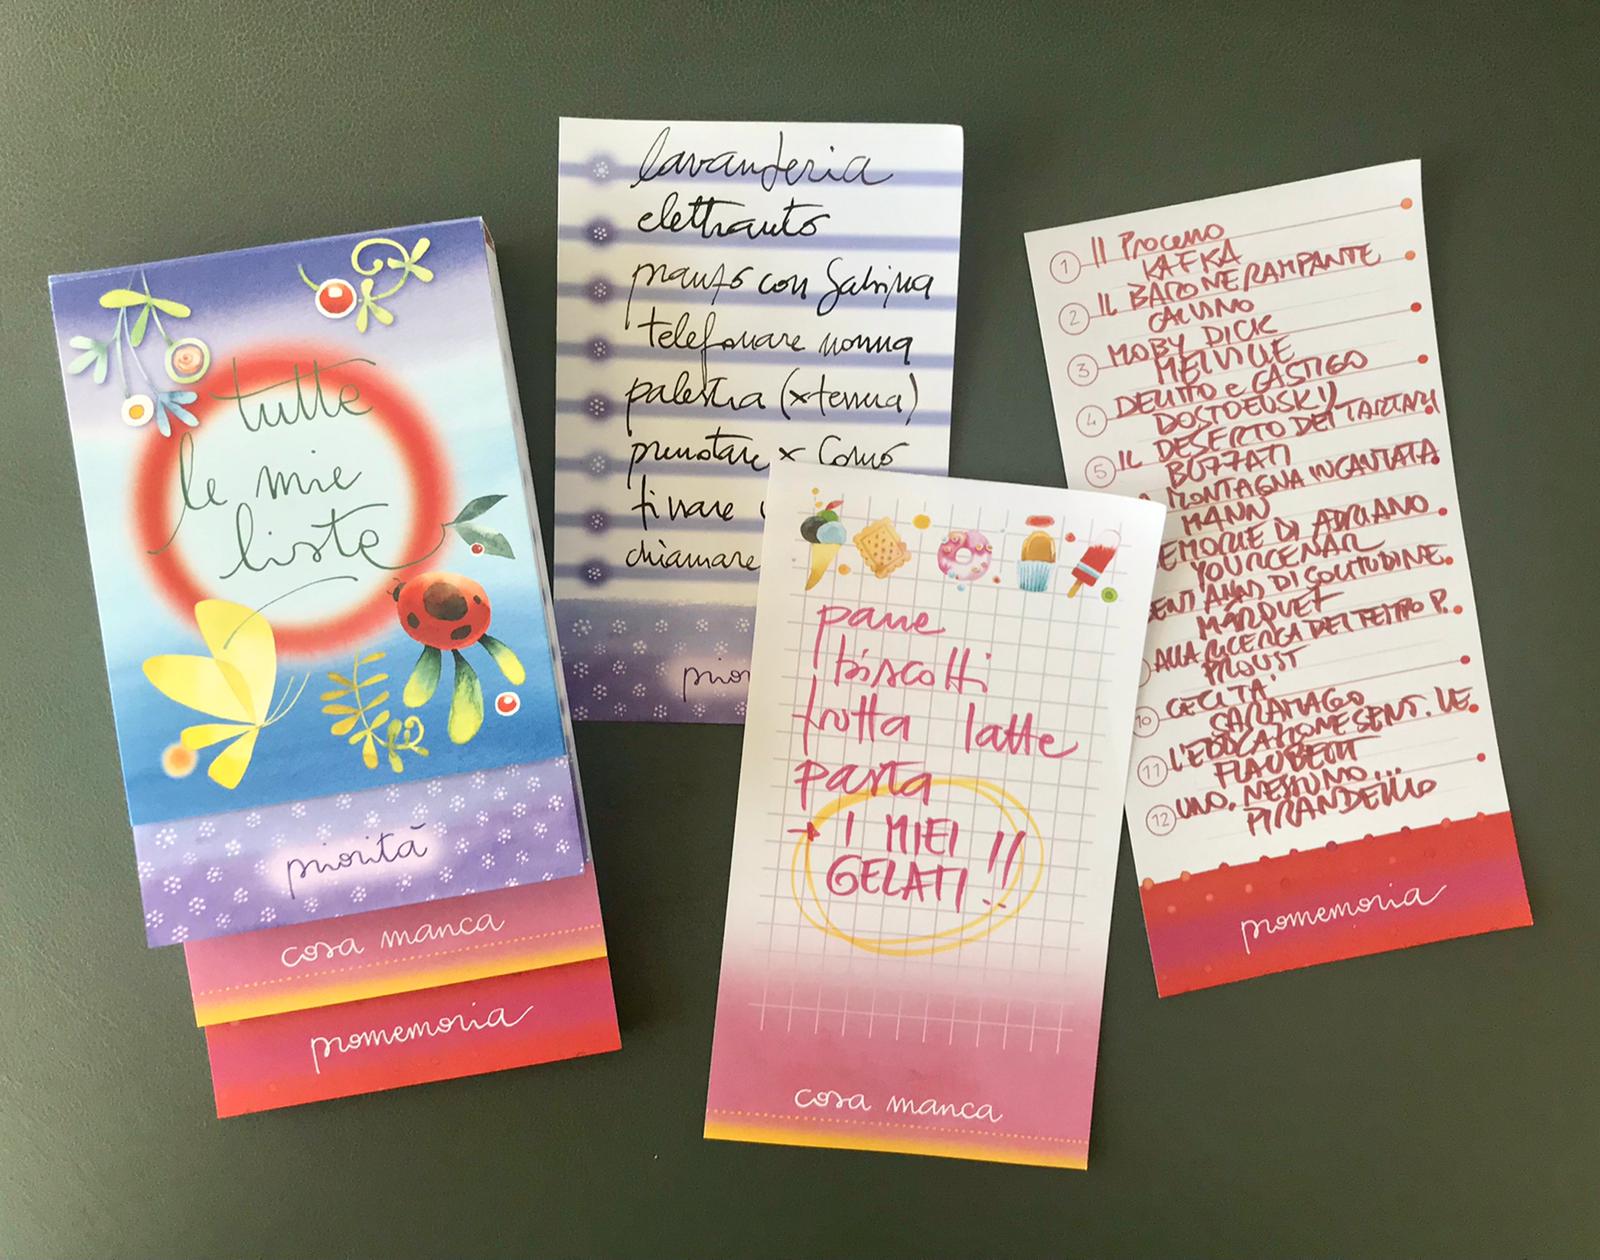 tutte
le mie
liste
priorità
cosa manca
promemoria
lavanderia
elettrauto
pranzo con Sabrina
telefonare nonna
palestra (x tessera)
prenotare x Como
chiamare
prior
pane
biscotti
frutta latte
pasta
I MIEI !!
GELATI
cosa manca
1 Il Processo
KAFKA
2 IL BARONE RAMPANTE
CALVINO
3 MOBY DICK
MELVILLE
4 DELITTO e CASTIGO
DOSTOEVSKIJ
5 IL DESERTO DEI TARTARI
BUZZATI
MONTAGNA INCANTATA
MANN
EMORIE DI ADRIANO
YOURCENAR
CENT'ANNI DI SOLITUDINE
MARQUEZ
ALLA RICERCA DEL TEMPO P.
PROUST
10 CECITÀ
SARAMAGO
11 L'EDUCAZIONE SENT. LE
FLAUBERT
12 UNO, NESSUNO...
PIRANDELLO
promemoria